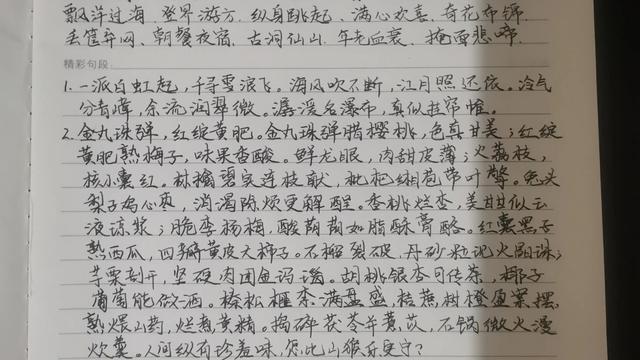 飘洋过海、登界游方、纵身跳起、满心欢喜、奇花布锦、
丢筐弃网、朝餐夜宿、古洞仙山、年老血衰、掩面悲啼、
精彩句段:
1. 一派白虹起，千寻雪浪飞。海风吹不断，江月照还依。冷气
分青嶂，余流润翠微。潺湲名瀑布，真似挂帘帷。
2. 金丸珠弹，红绽黄肥。金丸珠弹腊樱桃，色真甘美；红绽
黄肥熟梅子，味果香酸。鲜龙眼，肉甜皮薄；火荔枝，
核小囊红。林檎碧实连枝献，枇杷缃苞带叶擎。兔头
梨子鸡心枣，消渴除烦更解酲。香桃烂杏，美甘甘似云
液琼浆；脆李杨梅，酸荫荫如脂酥膏酪。红囊黑子
熟西瓜，四瓣黄皮大柿子。石榴裂破，丹砂粒现火晶珠；
芋栗剖开，坚硬肉团金玛瑙。胡桃银杏可传茶，椰子
葡萄能做酒。榛松榧柰满盘盛，桔蔗柑橙盈案摆。
熟煨山药，烂煮黄精。捣碎茯苓并薏苡，石锅微火漫
炊羹。人间纵有珍羞味，怎比山猴乐更宁？